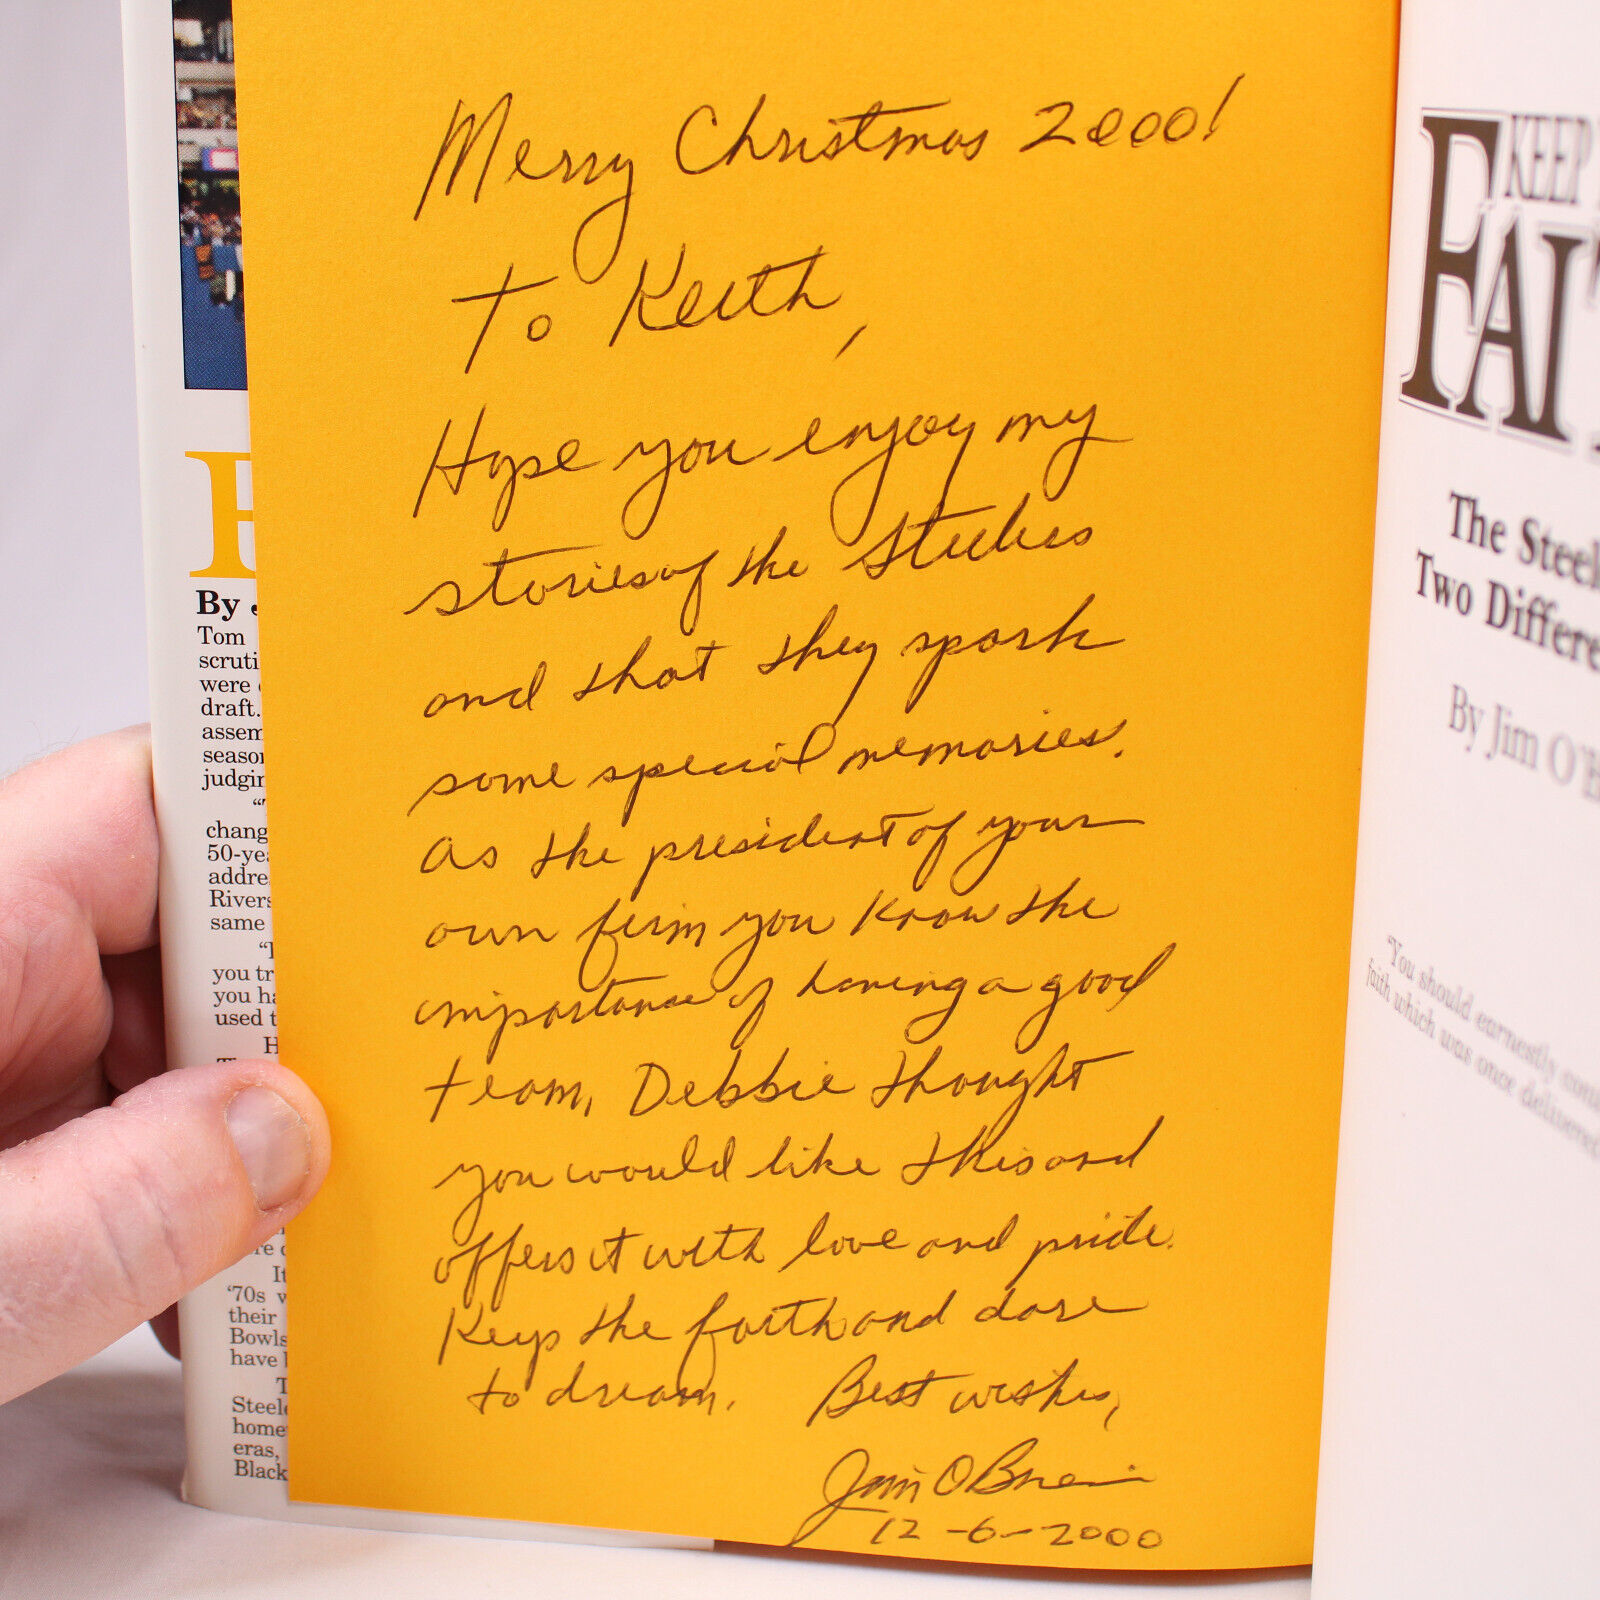 Merry Christmas 2000!
To Keith,
Hope you enjoy my
stories of the Steelers
and that they spark
some special memories.
As the president of your
own firm you know the
importance of having a good
team. Debbie thought
you would like this and
offers it with love and pride.
Keep the faith and dare
to dream. Best wishes,
Jim O'Brien
12-6-2000
By J
Tom
scruti
were
draft.
assem
season
judgin
"T
chang
50-yea
addre
Rivers
same
you tr
you ha
used t
H
It
'70s w
their
Bowls
have
T
Steele
home
eras,
Black
KEEP
FAIT
The Steel
Two Differe
By Jim O'B
"You should earnestly con
faith which was once delivered